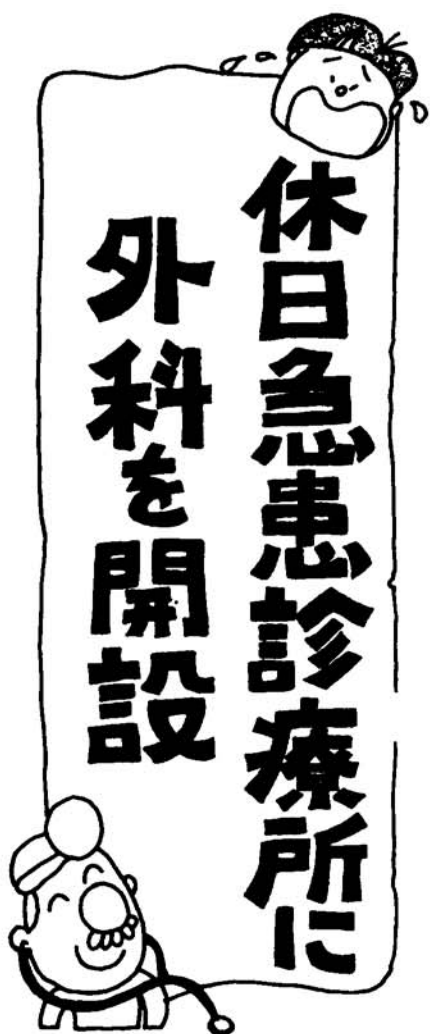 休日急患診療所に
外科を開設